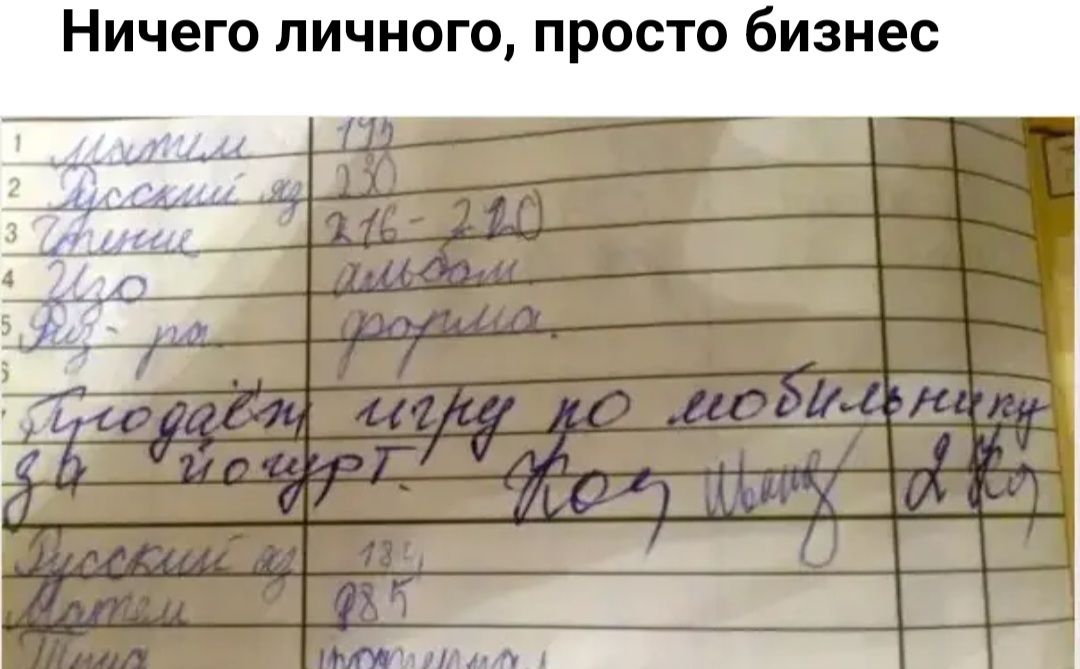 Ничего личного, просто бизнес
1 Матем 195
2 Русский яз 230
3 Чтение 216-220
4 Изо альбом
5 Физ-ра форма.
6
Продаёт игру по мобильнику
за йогурт.
Русский яз 184
Матем 985